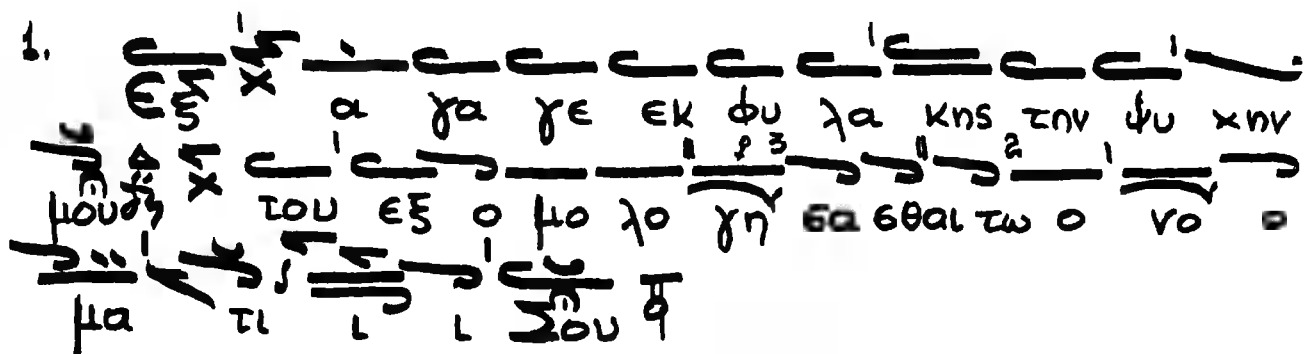 1. Εξ α γα γε εκ φυ λα κης την ψυ χην
μου του εξ ο μο λο γη σα σθαι τω ο νο ο
μα τι ι ι Σου